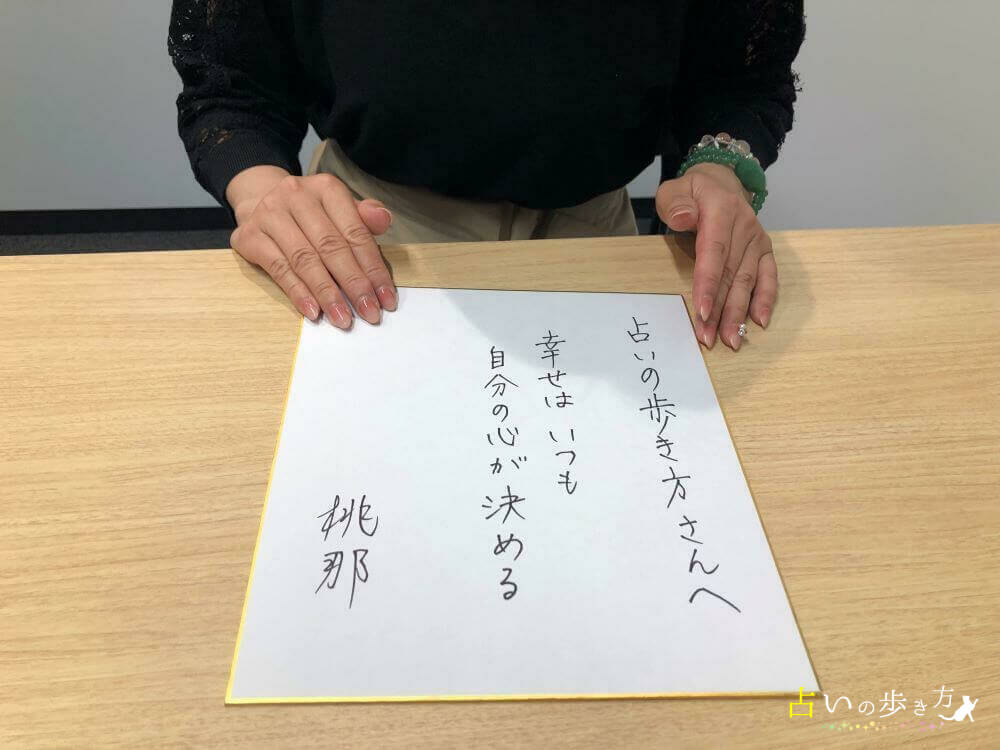 占いの歩き方さんへ
幸せは いつも
自分の心が決める
桃那
占いの歩き方